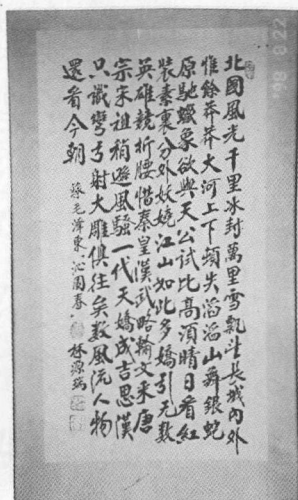 北國風光千里冰封萬里雪飄望長城內外
惟餘莽莽大河上下頓失滔滔山舞銀蛇
原馳蠟象欲與天公試比高須晴日看紅
裝素裹分外妖嬈江山如此多嬌引无數
英雄競折腰惜秦皇漢武略輸文采唐
宗宋祖稍遜風騷一代天嬌成吉思漢
只識彎弓射大雕俱往矣數風流人物
還看今朝
錄毛澤東沁園春
'98 8 22